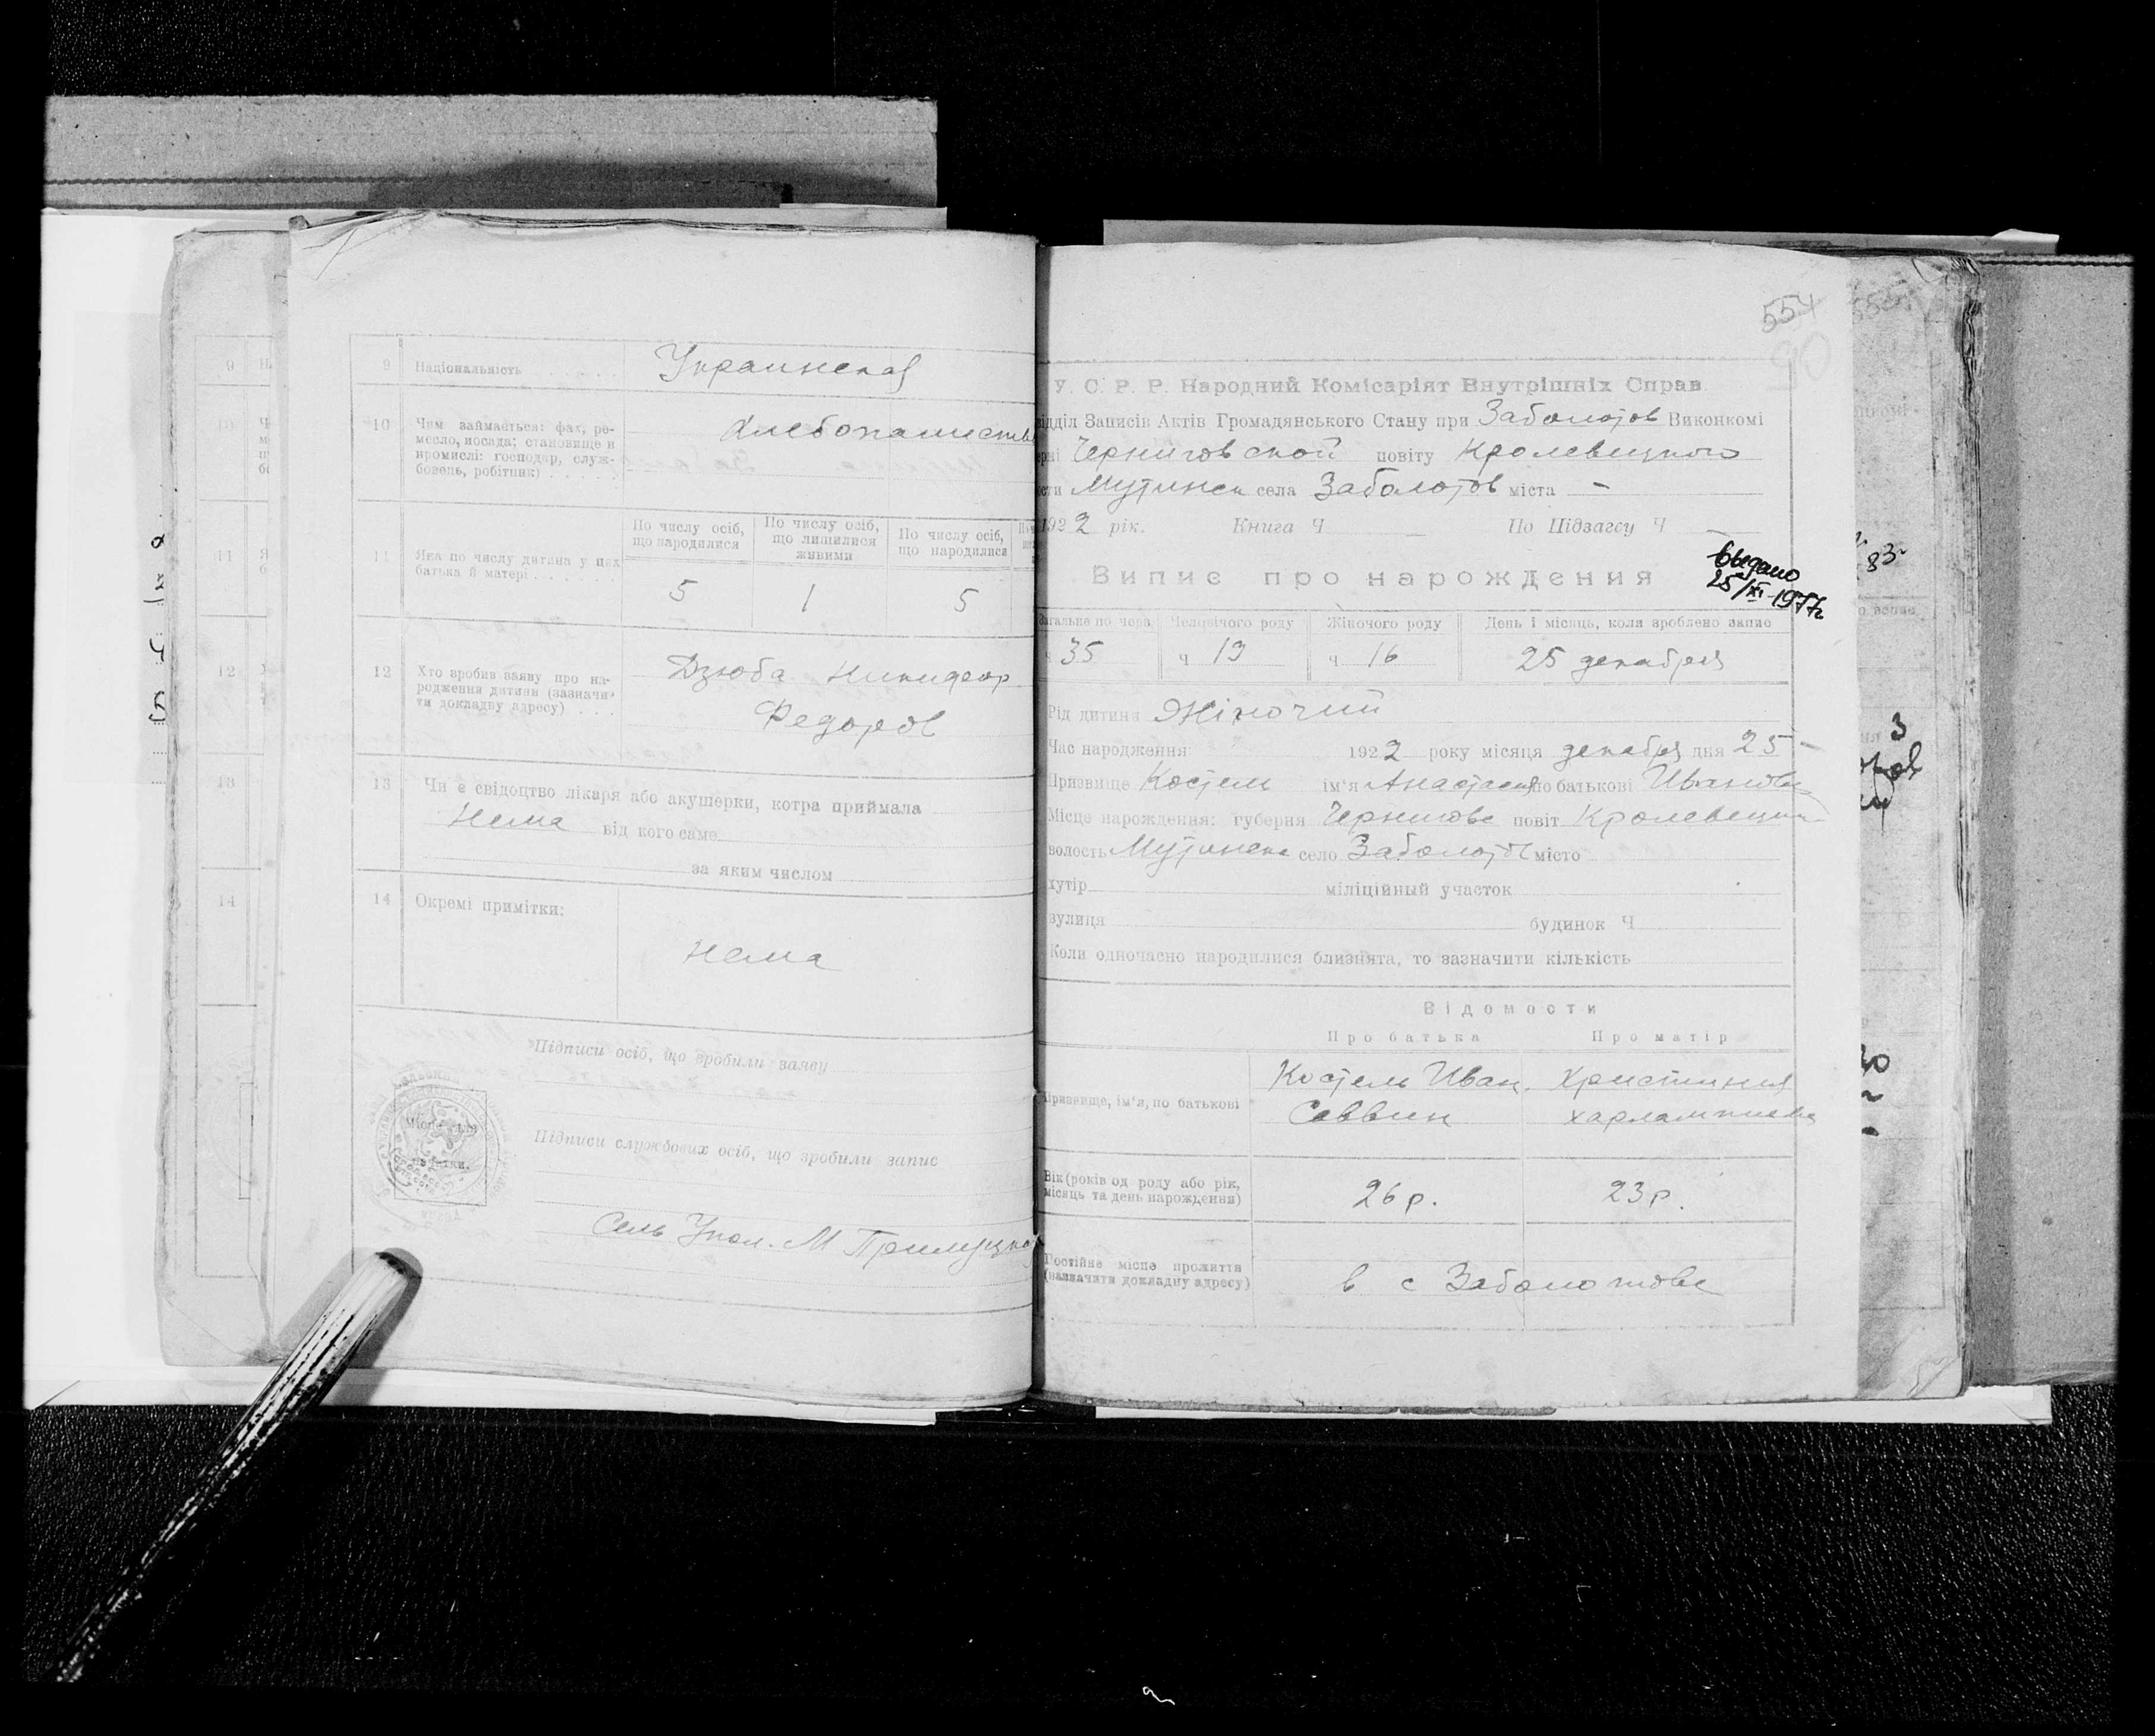 9 Національність Украинская
10 Чим займається: фах, ремесло, посада; становище и
промислі: господар, службовець, робітник)
Хлебопашество
11 Яка по числу дитина у цих батька й матері
По числу осіб, що народилися
По числу осіб, що лишилися живими
По числу осіб, що народилися
5 1 5
12 Хто зробив заяву про народження дитини (зазначити докладну адресу)
Дзюба Никифор
Федоров
13 Чи є свідоцтво лікаря або акушерки, котра приймала
Нема від кого саме
за яким числом
14 Окремі примітки:
нема
Підписи осіб, що зробили заяву
Місце для
печатки.
Підписи службових осіб, що зробили запис
Сель Упол. М
554
90
У. С. Р. Р. Народний Комісаріят Внутрішніх Справ.
відділ Записів Актів Громадянського Стану при Заболотов Виконкомі
Черниговской повіту Кролевецкого
Мутинск села Заболотов міста –
1922 рік. Книга Ч — По Підзагсу Ч —
Випис про нарождення
выдано
25/XI-1977г
Загальне по черв. Человічого роду Жіночого роду День і місяць, коли зроблено запис
ч 35 ч 19 ч 16 25 декабря
Рід дитини Жіночий
Час народження: 1922 року місяця декабря дня 25 –
Призвище Костель ім'я Анастасия по батькові Иванова
Місце народження: губерня Чернигове повіт Кролевецк
волость Мутинск село Заболотов місто
хутір міліційный участок
вулиця будинок Ч
Коли одночасно народилися близнята, то зазначити кількість
Відомости
Про батька Про матір
Призвище, ім'я, по батькові
Костель Иван. Христиния
Саввин Харлампиева
Вік (років од роду або рік, місяць та день нарождення)
26 р. 23 р.
Постійне місце прожиття
(зазначити докладну адресу)
в с Заболотове